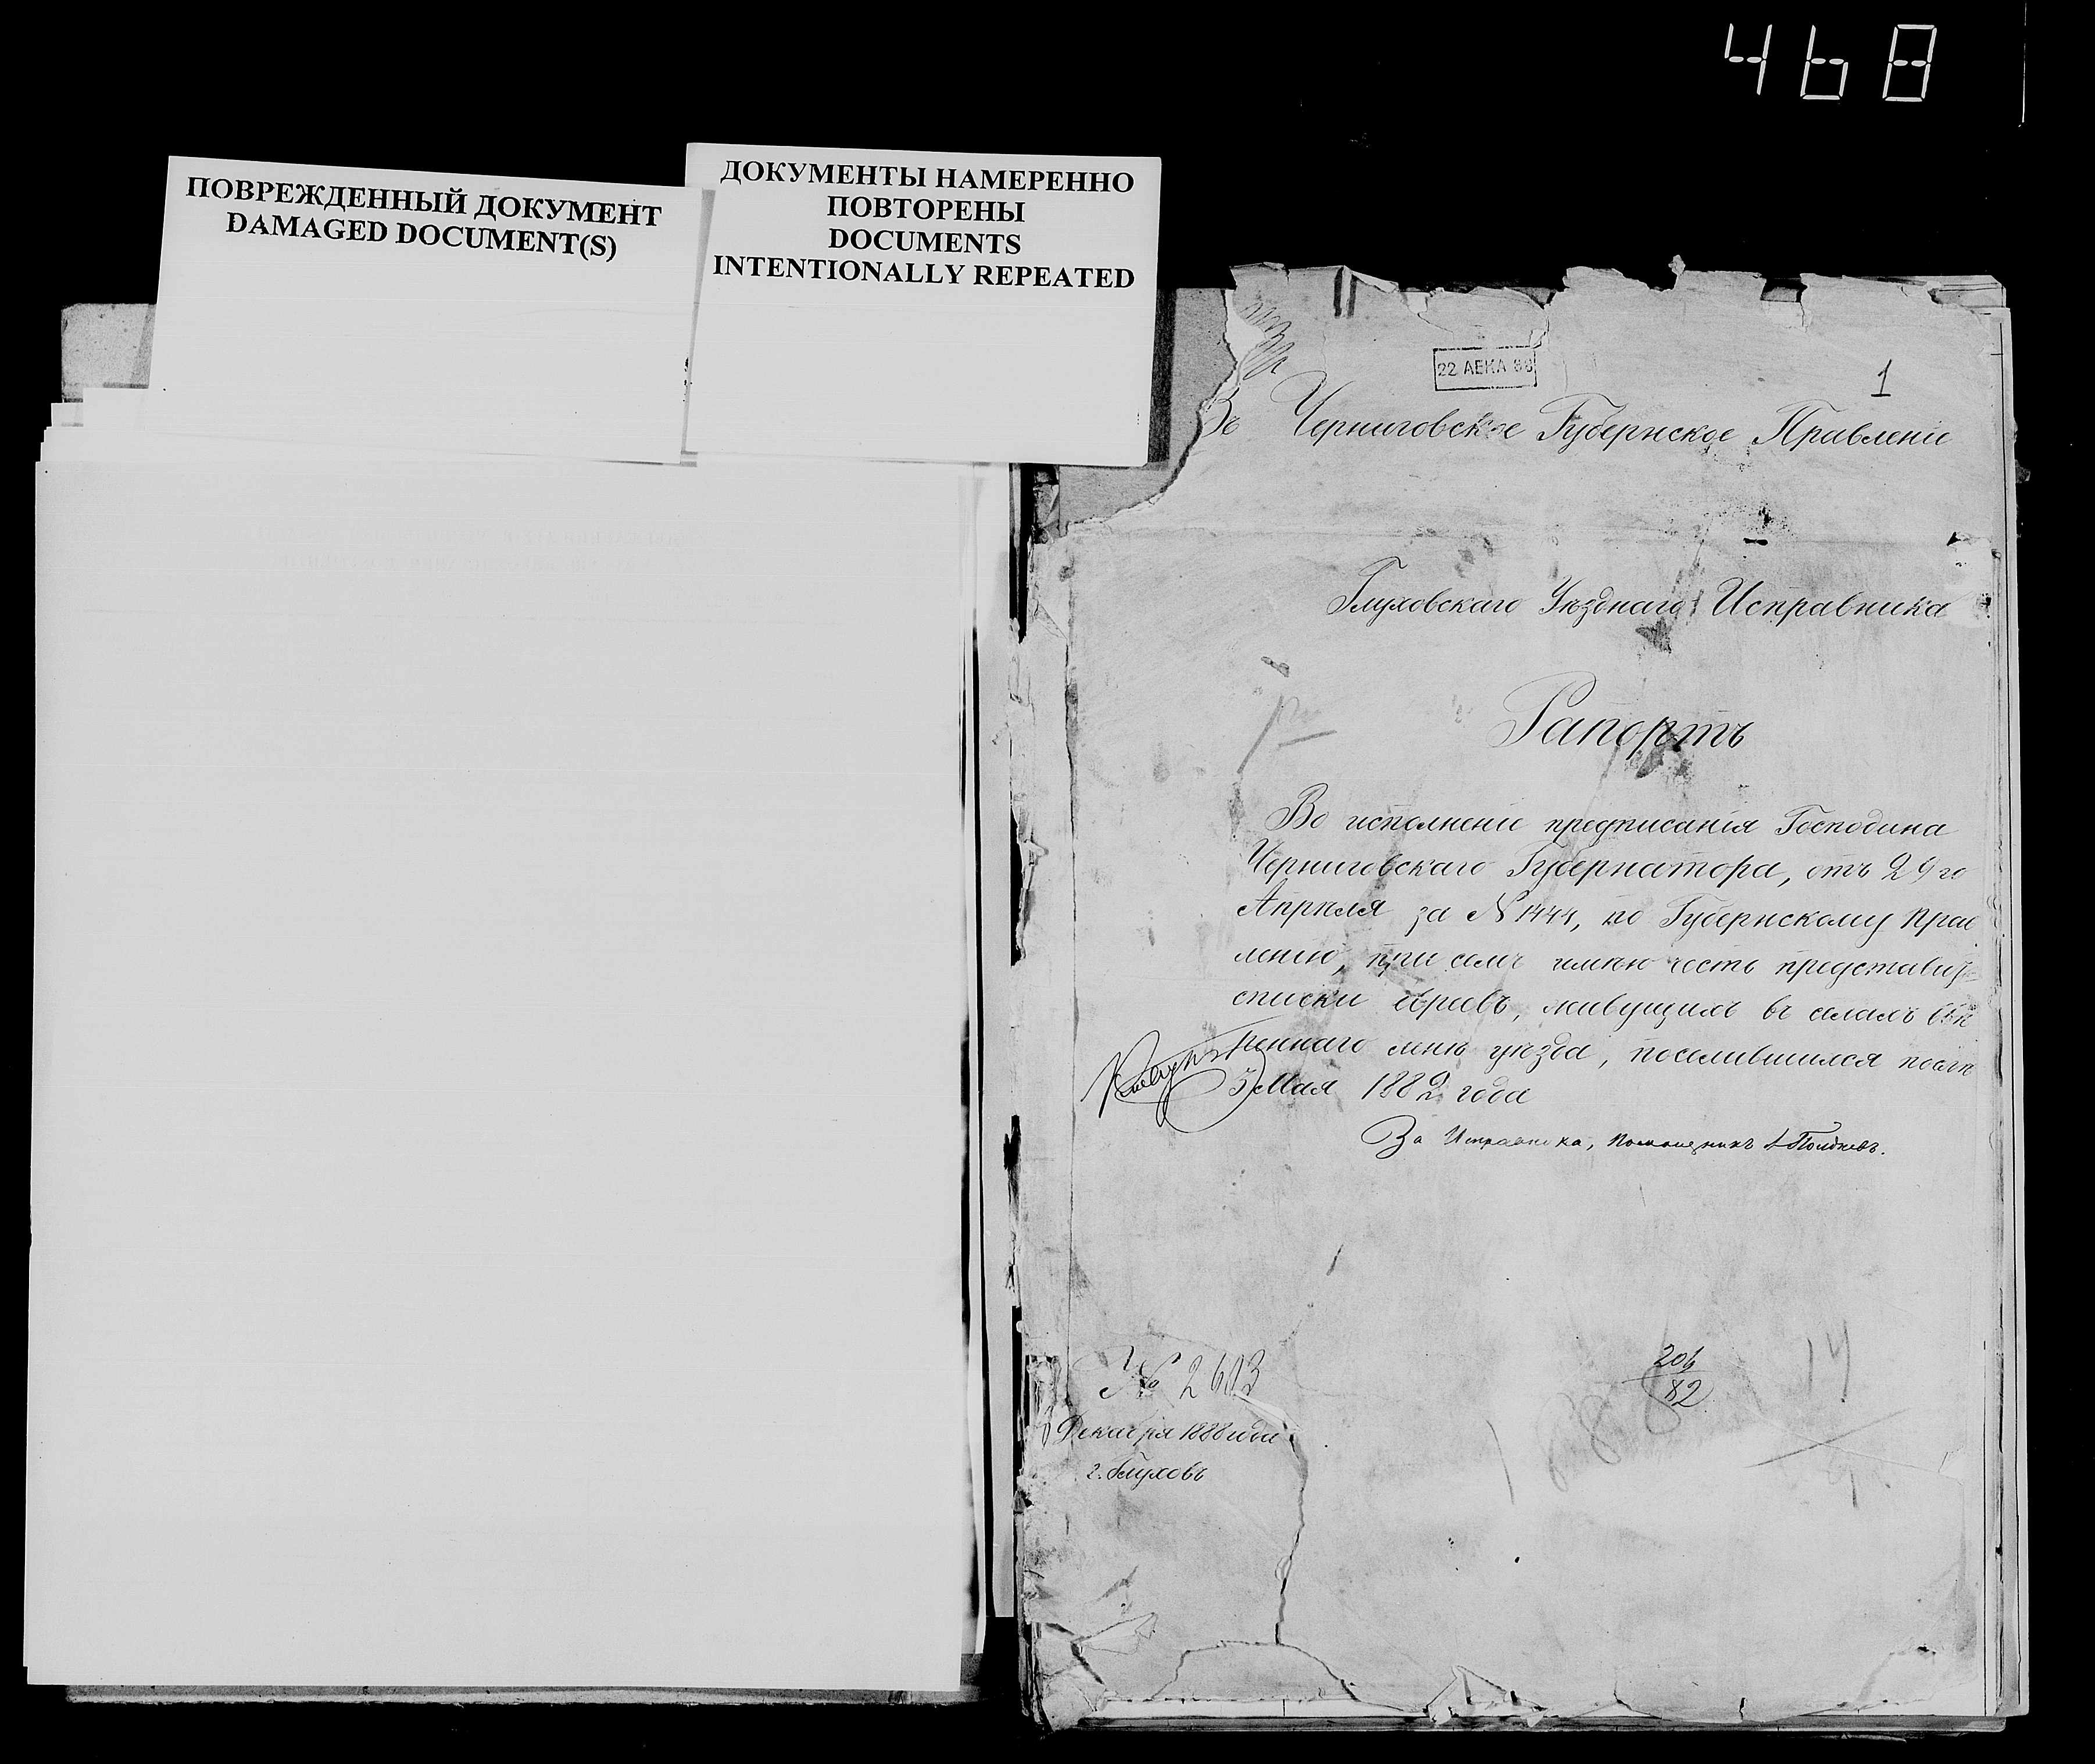 468
ПОВРЕЖДЕННЫЙ ДОКУМЕНТ
DAMAGED DOCUMENT(S)
ДОКУМЕНТЫ НАМЕРЕННО
ПОВТОРЕНЫ
DOCUMENTS
INTENTIONALLY REPEATED
22 ДЕКА 88
1
Въ Черниговское Губернское Правленіе
Глуховскаго Уѣзднаго Исправника
Рапортъ
Во исполненіе предписанія Господина
Черниговскаго Губернатора, отъ 29го
Апрѣля за № 1444, по Губернскому Прав
ленію, при семъ имѣю честь представить
списки евреевъ, живущихъ въ селахъ ввѣ
реннаго мнѣ уѣзда, поселившихся послѣ
3 Мая 1882 года
За Исправника, Помощникъ
№ 2613
Декабря 1888 года
г. Глуховъ
206
82
14